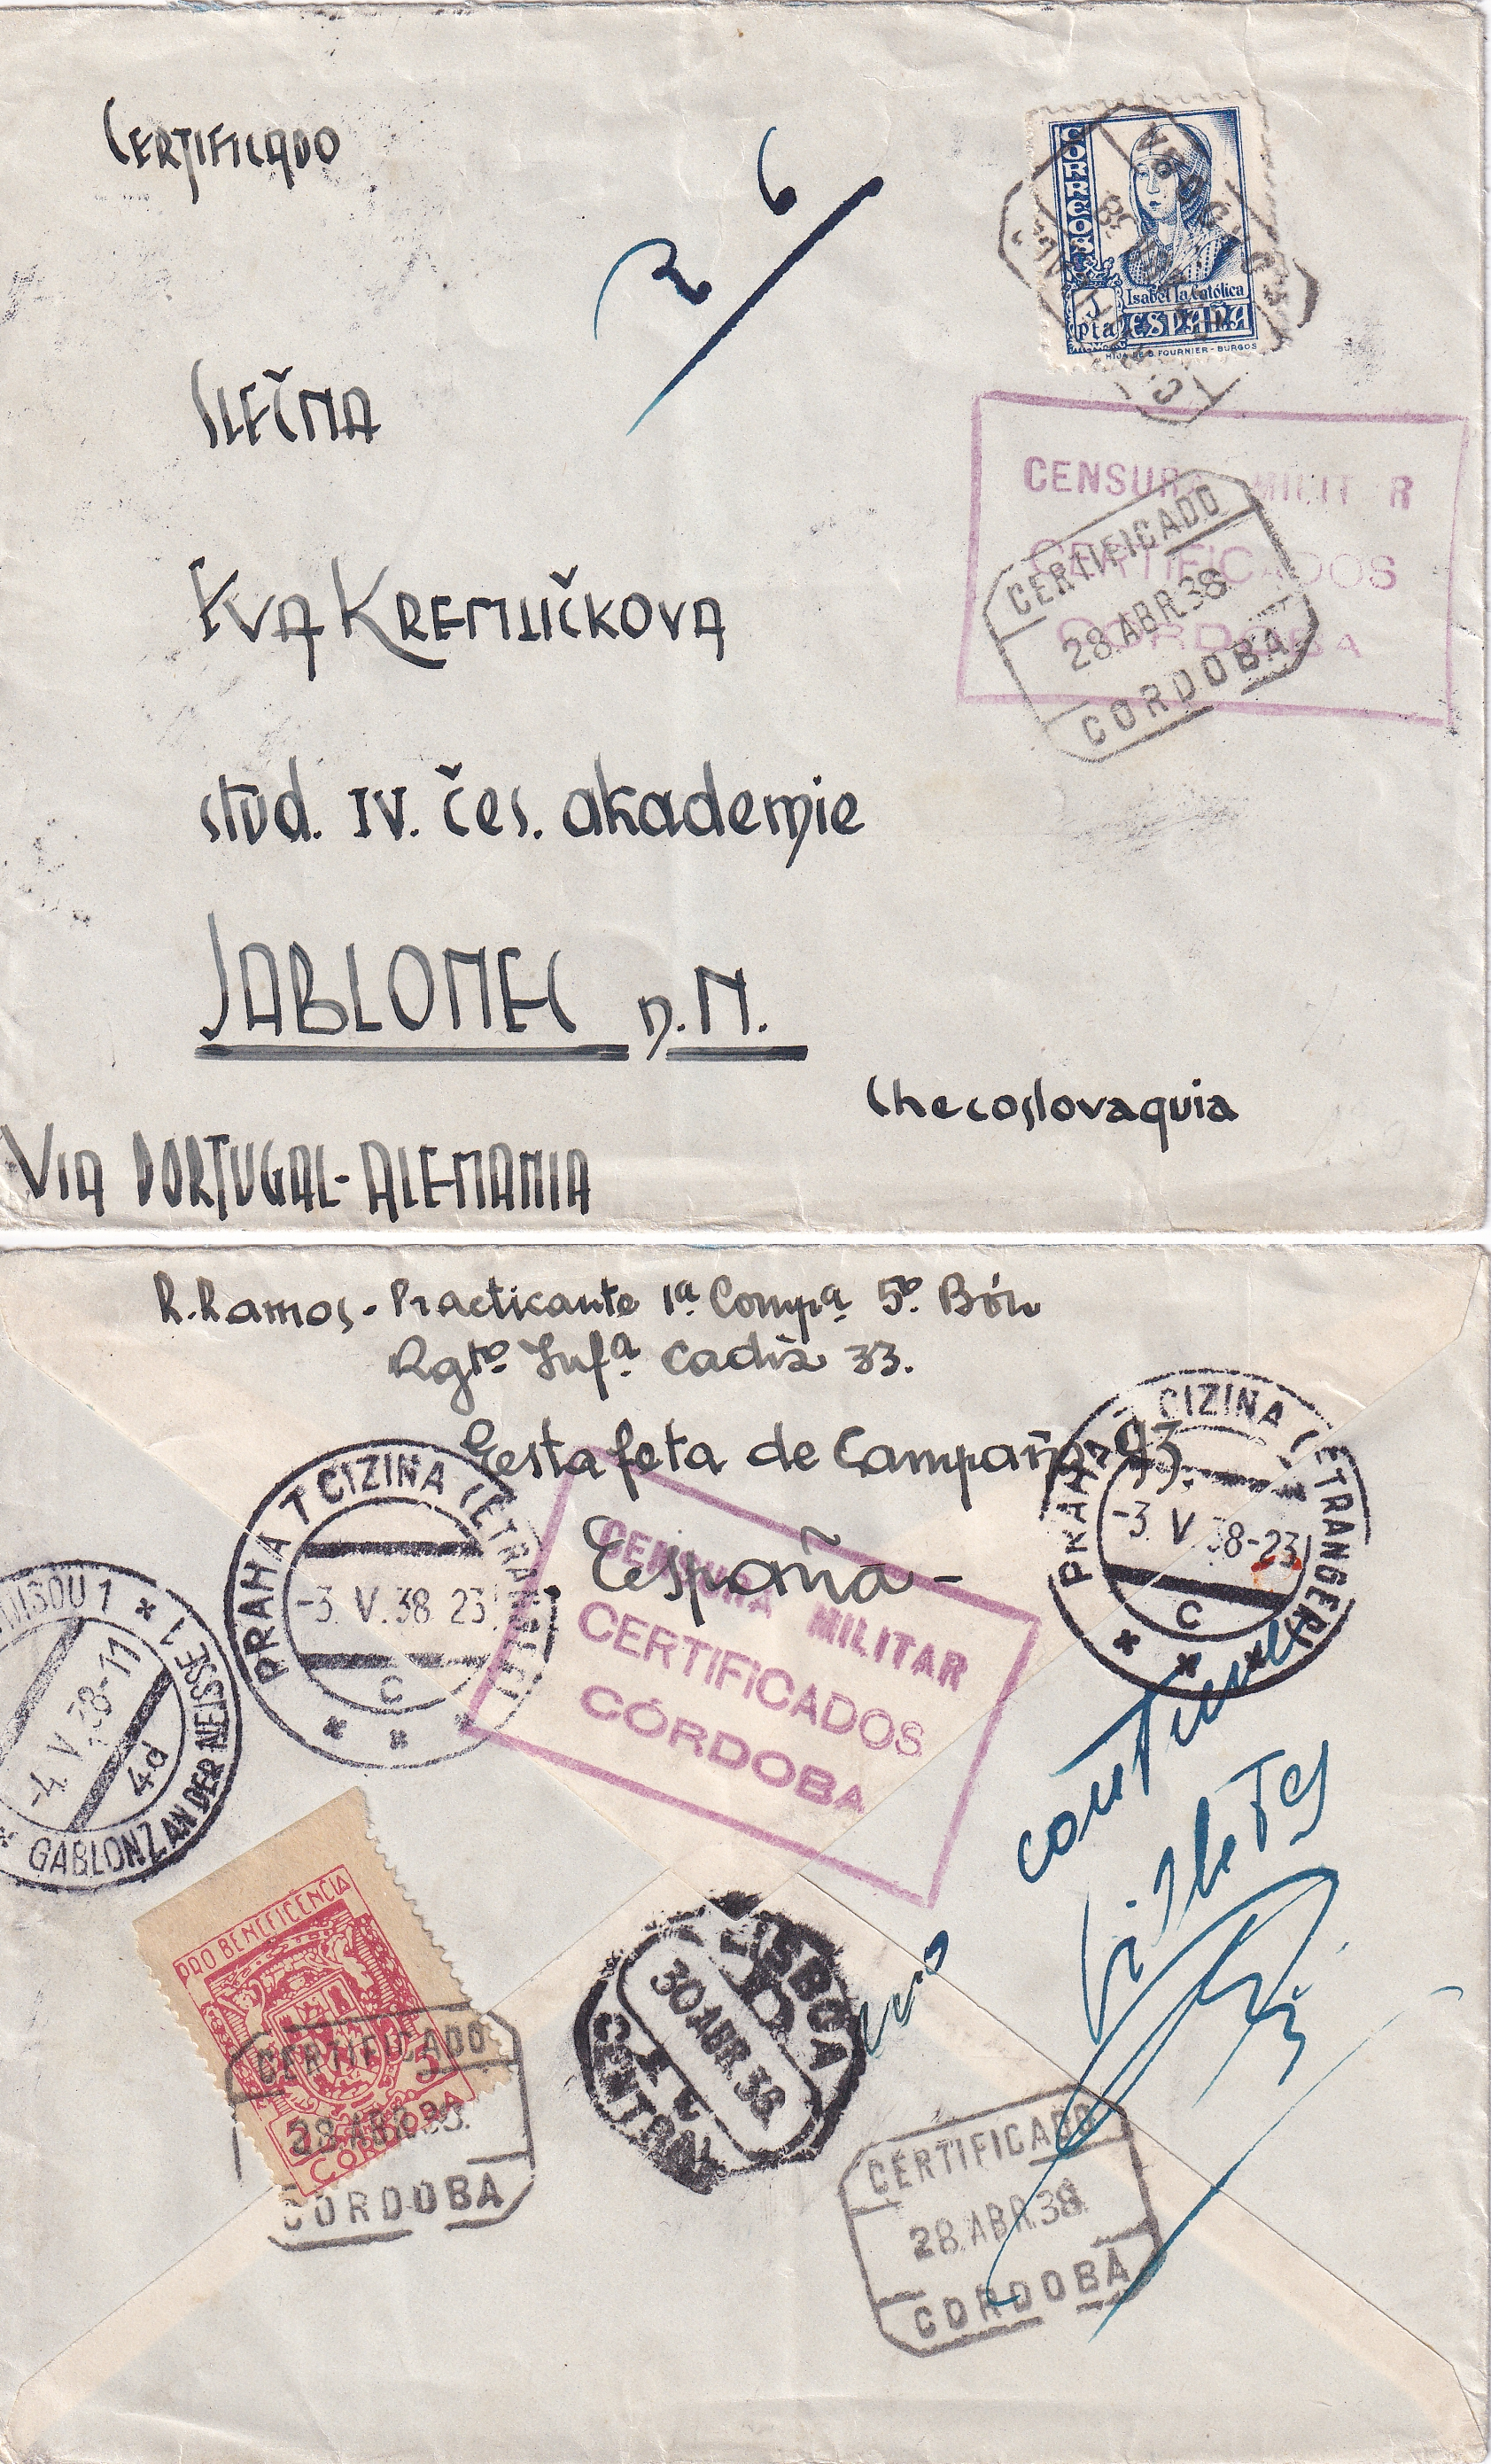 CERTIFICADO
R 6
CORREOS
1 pta
Isabel la Católica
ESPAÑA
HIJA DE B. FOURNIER - BURGOS
CORDOBA
SLEČNA
CENSURA MILITAR
CERTIFICADOS
CORDOBA
CERTIFICADO
28 ABR. 38
CORDOBA
EVA KREMLIČKOVA
stud. IV. čes. akademie
JABLONEC n. N.
Checoslovaquia
VIA PORTUGAL-ALEMANIA
R. Ramos - Practicante 1ª Compª 5º Bón
Rgtº Infª Cadiz 33.
Estafeta de Campaña 93.
España -
PRAHA 7 CIZINA (ETRANGER)
-3. V. 38-23
C
PRAHA 7 CIZINA (ETRANGER)
-3. V. 38 23
C
NISOU 1
-4. V. 38-11
4d
GABLONZ AN DER NEISSE 1
CENSURA MILITAR
CERTIFICADOS
CÓRDOBA
billetes
PRO BENEFICENCIA
5
CORDOBA
CERTIFICADO
28 ABR. 38
CORDOBA
LISBOA
30 ABR. 38
CENTRAL
CERTIFICADO
28 ABR. 38
CORDOBA